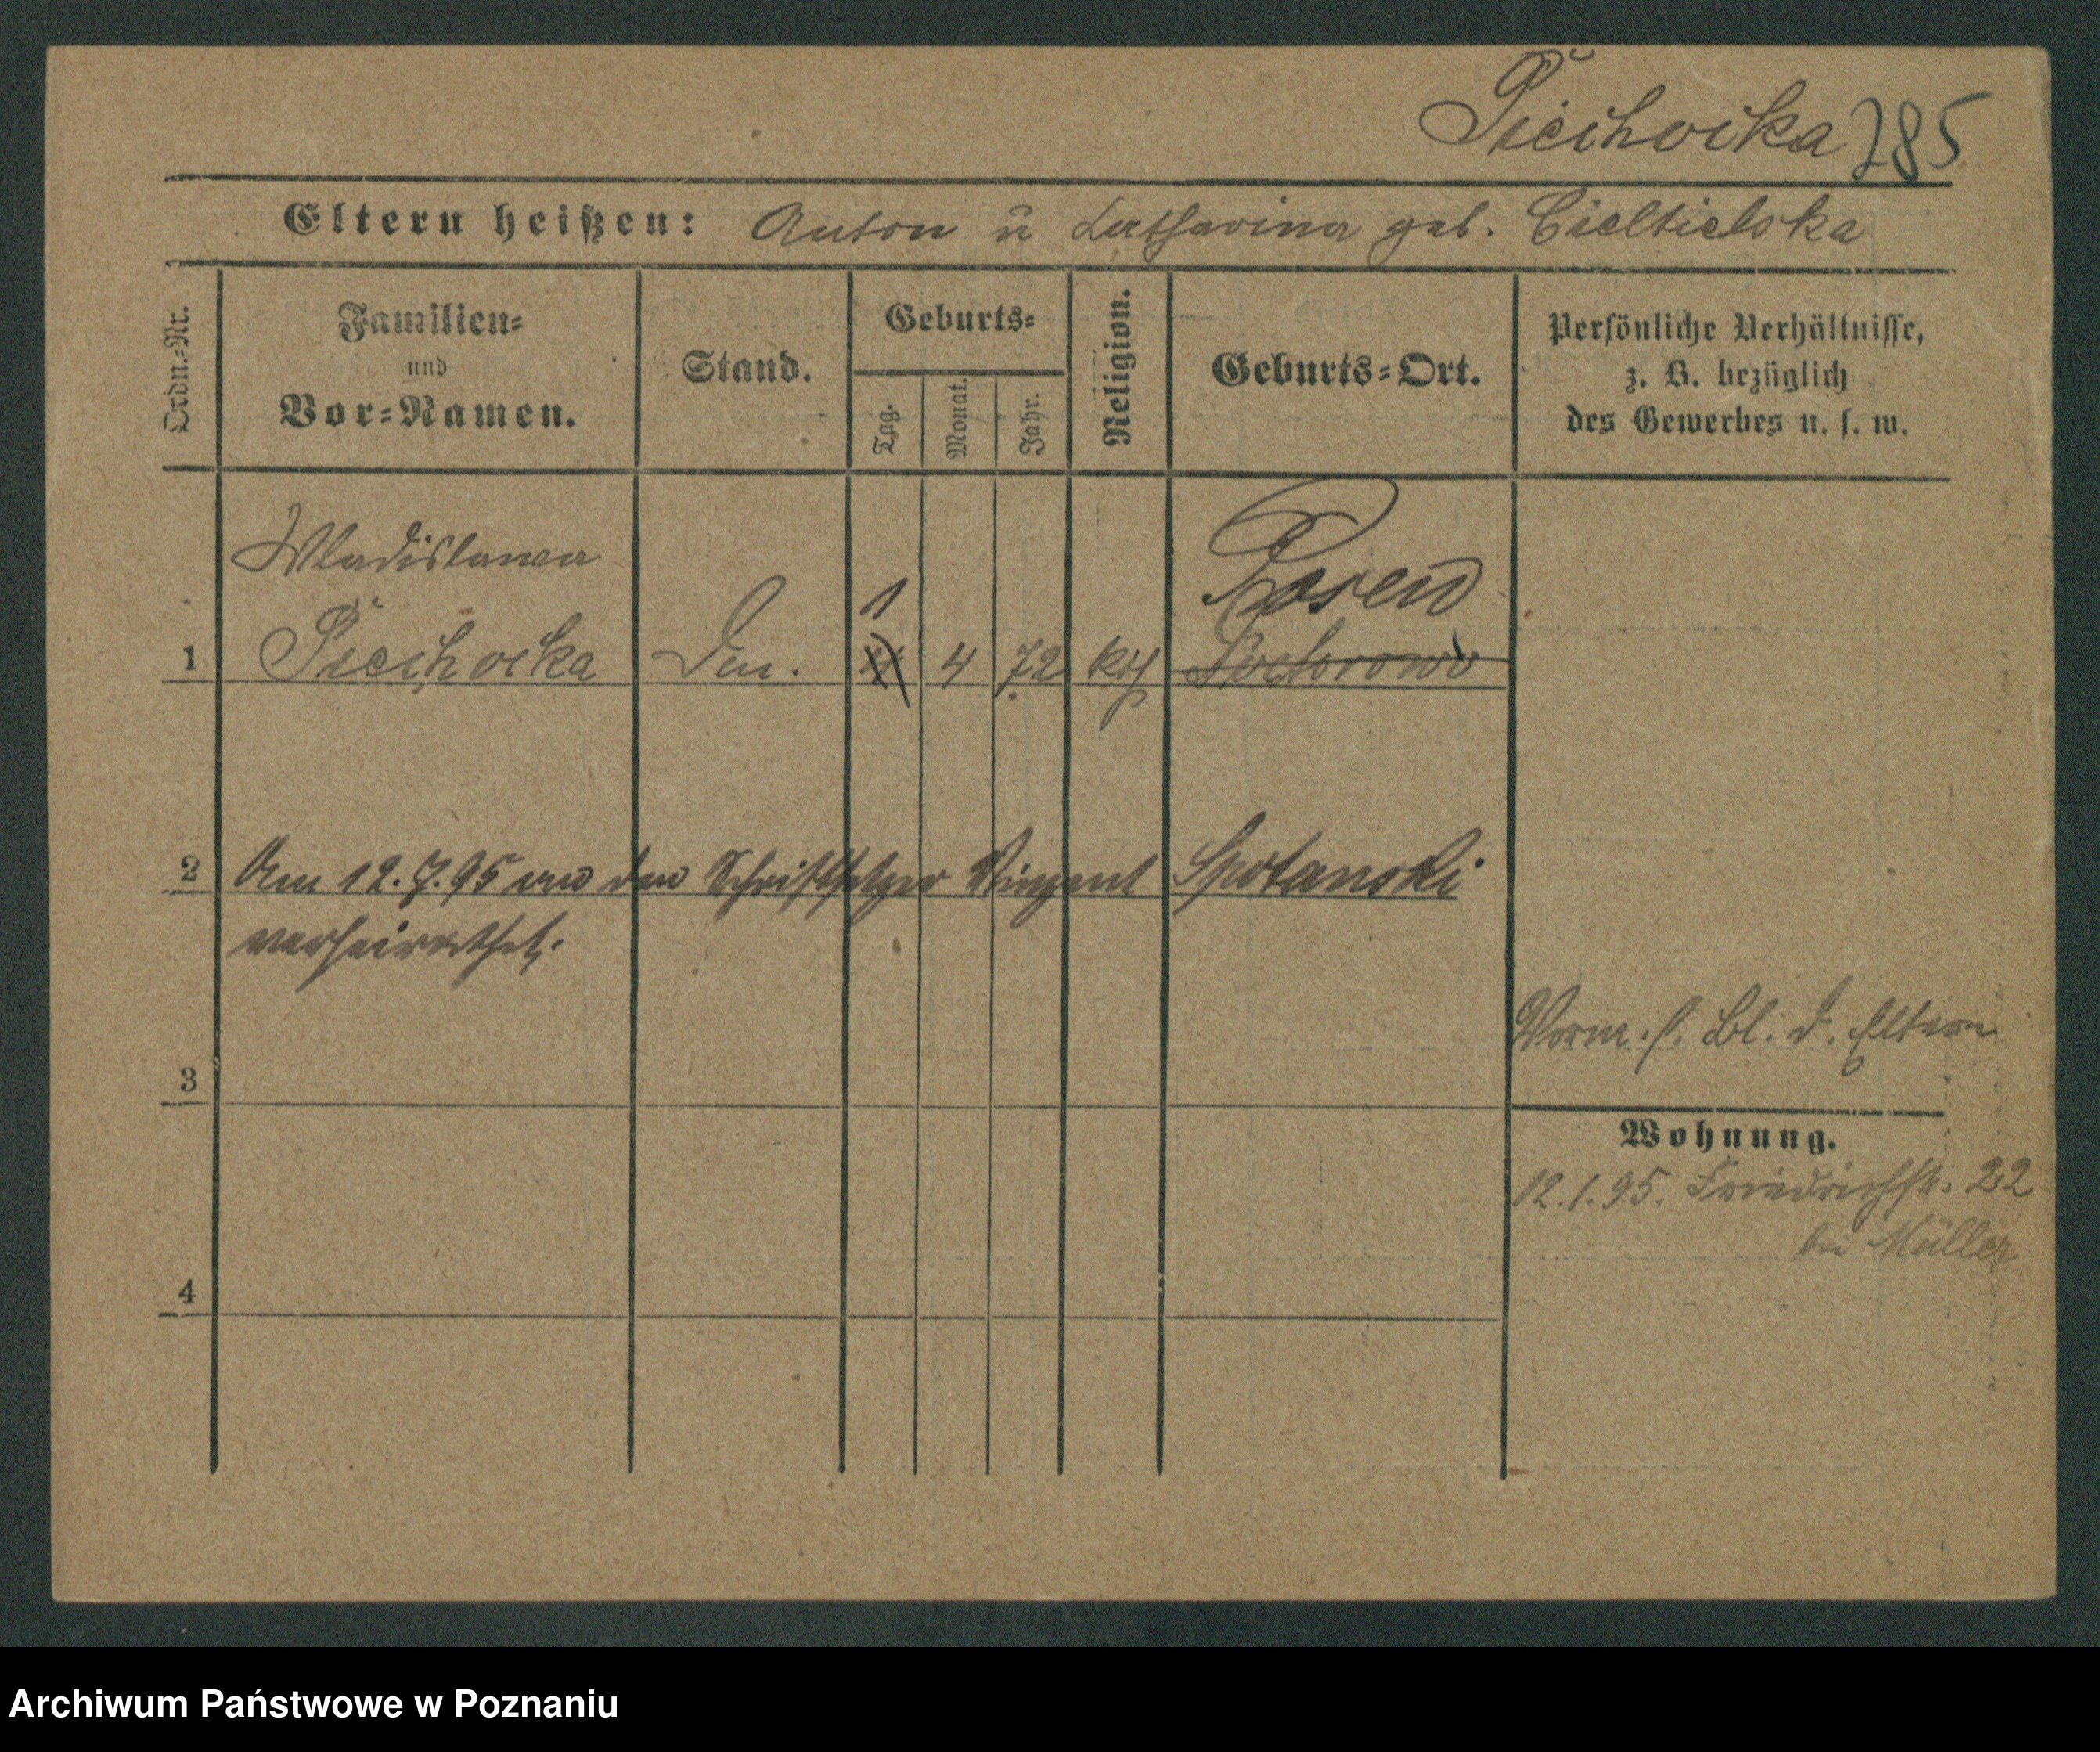 Piechocka 285
Eltern heißen: Anton u Katharina geb. Cieltielska
Ordn.-Nr.
Familien-
und
Vor-Namen.
Stand.
Geburts-
Tag.
Monat.
Jahr.
Religion.
Geburts-Ort.
Persönliche Verhältnisse,
z. B. bezüglich
des Gewerbes u. s. w.
Wladislawa
1
Posen
1 Piechocka 4 72 kth
2 Am 12.7.95 an den Schriftsetzer Vinzent Spotanski
verheirathet.
Vorm. s. Bl. d. Eltern
3
Wohnung.
12.1.95. Friedrichstr. 22
bei Müller
4
Archiwum Państwowe w Poznaniu